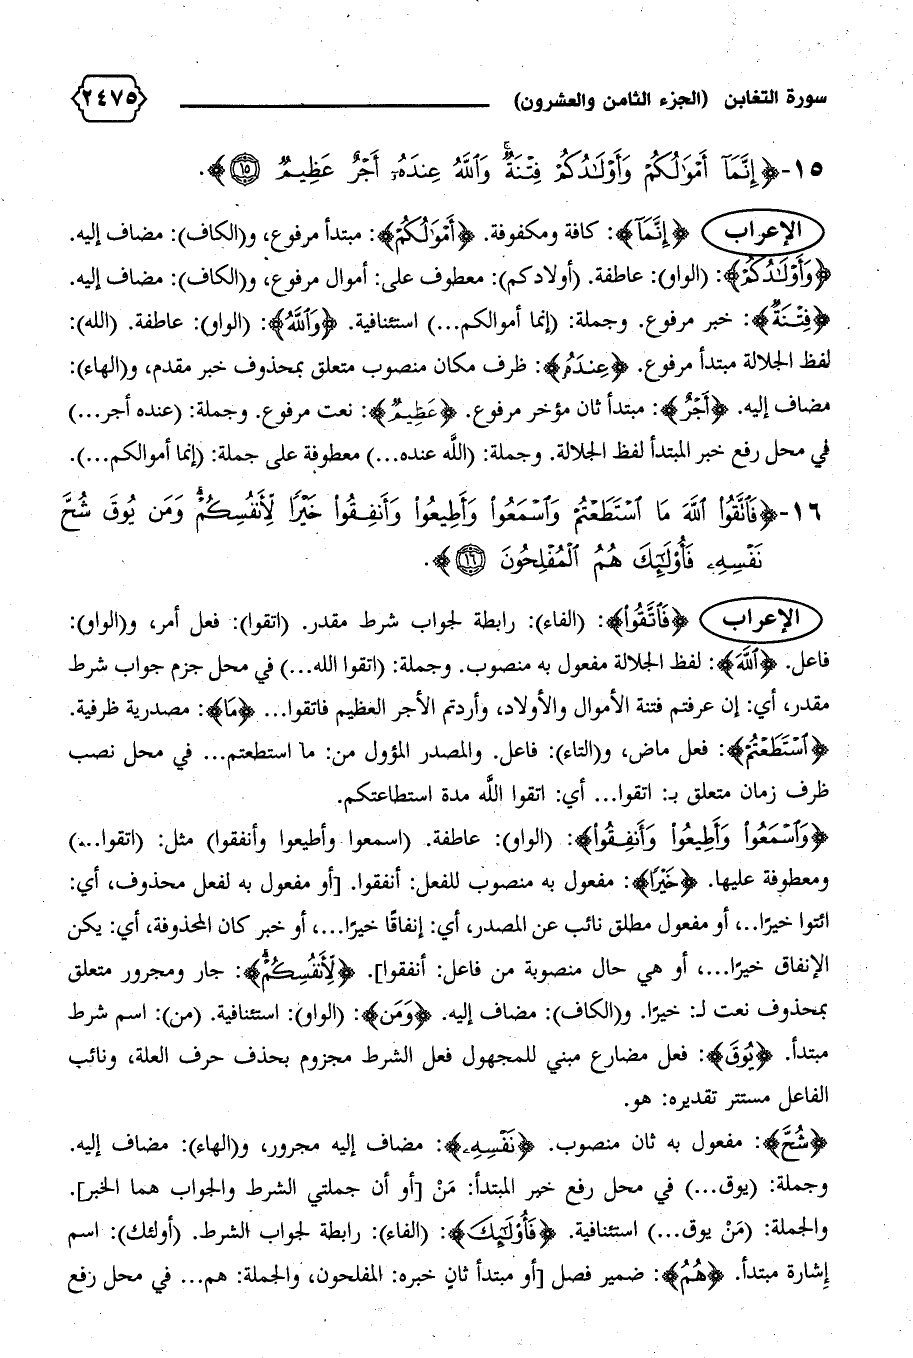 سورة التغابن (الجزء الثامن والعشرون) ٢٤٧٥
١٥-﴿إِنَّمَآ أَمْوَٰلُكُمْ وَأَوْلَٰدُكُمْ فِتْنَةٌۚ وَٱللَّهُ عِندَهُۥٓ أَجْرٌ عَظِيمٌ ۝١٥﴾.
الإعراب ﴿إِنَّمَآ﴾: كافة ومكفوفة. ﴿أَمْوَٰلُكُمْ﴾: مبتدأ مرفوع، و(الكاف): مضاف إليه.
﴿وَأَوْلَٰدُكُمْ﴾: (الواو): عاطفة. (أولادكم): معطوف على: أموال مرفوع، و(الكاف): مضاف إليه.
﴿فِتْنَةٌۚ﴾: خبر مرفوع. وجملة: (إنما أموالكم...) استئنافية. ﴿وَٱللَّهُ﴾: (الواو): عاطفة. (الله):
لفظ الجلالة مبتدأ مرفوع. ﴿عِندَهُۥ﴾: ظرف مكان منصوب متعلق بمحذوف خبر مقدم، و(الهاء):
مضاف إليه. ﴿أَجْرٌ﴾: مبتدأ ثان مؤخر مرفوع. ﴿عَظِيمٌ﴾: نعت مرفوع. وجملة: (عنده أجر...)
في محل رفع خبر المبتدأ لفظ الجلالة. وجملة: (اللَّه عنده...) معطوفة على جملة: (إنما أموالكم...).
١٦-﴿فَٱتَّقُوا۟ ٱللَّهَ مَا ٱسْتَطَعْتُمْ وَٱسْمَعُوا۟ وَأَطِيعُوا۟ وَأَنفِقُوا۟ خَيْرًا لِّأَنفُسِكُمْۗ وَمَن يُوقَ شُحَّ
نَفْسِهِۦ فَأُو۟لَٰٓئِكَ هُمُ ٱلْمُفْلِحُونَ ۝١٦﴾.
الإعراب ﴿فَٱتَّقُوا۟﴾: (الفاء): رابطة لجواب شرط مقدر. (اتقوا): فعل أمر، و(الواو):
فاعل. ﴿ٱللَّهَ﴾: لفظ الجلالة مفعول به منصوب. وجملة: (اتقوا الله...) في محل جزم جواب شرط
مقدر، أي: إن عرفتم فتنة الأموال والأولاد، وأردتم الأجر العظيم فاتقوا... ﴿مَا﴾: مصدرية ظرفية.
﴿ٱسْتَطَعْتُمْ﴾: فعل ماض، و(التاء): فاعل. والمصدر المؤول من: ما استطعتم... في محل نصب
ظرف زمان متعلق بـ: اتقوا... أي: اتقوا اللَّه مدة استطاعتكم.
﴿وَٱسْمَعُوا۟ وَأَطِيعُوا۟ وَأَنفِقُوا۟﴾: (الواو): عاطفة. (اسمعوا وأطيعوا وأنفقوا) مثل: (اتقوا...)
ومعطوفة عليها. ﴿خَيْرًا﴾: مفعول به منصوب للفعل: أنفقوا. [أو مفعول به لفعل محذوف، أي:
ائتوا خيرًا..، أو مفعول مطلق نائب عن المصدر، أي: إنفاقًا خيرًا...، أو خبر كان المحذوفة، أي: يكن
الإنفاق خيرًا...، أو هي حال منصوبة من فاعل: أنفقوا]. ﴿لِّأَنفُسِكُمْۗ﴾: جار ومجرور متعلق
بمحذوف نعت لـ: خيرًا. و(الكاف): مضاف إليه. ﴿وَمَن﴾: (الواو): استئنافية. (من): اسم شرط
مبتدأ. ﴿يُوقَ﴾: فعل مضارع مبني للمجهول فعل الشرط مجزوم بحذف حرف العلة، ونائب
الفاعل مستتر تقديره: هو.
﴿شُحَّ﴾: مفعول به ثان منصوب. ﴿نَفْسِهِۦ﴾: مضاف إليه مجرور، و(الهاء): مضاف إليه.
وجملة: (يوق...) في محل رفع خبر المبتدأ: مَنْ [أو أن جملتي الشرط والجواب هما الخبر].
والجملة: (مَنْ يوق...) استئنافية. ﴿فَأُو۟لَٰٓئِكَ﴾: (الفاء): رابطة لجواب الشرط. (أولئك): اسم
إشارة مبتدأ. ﴿هُمُ﴾: ضمير فصل [أو مبتدأ ثانٍ خبره: المفلحون، والجملة: هم... في محل رفع